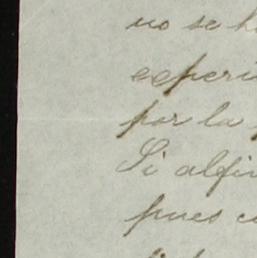 no se h
esperi
por la
Si alfin
pues c